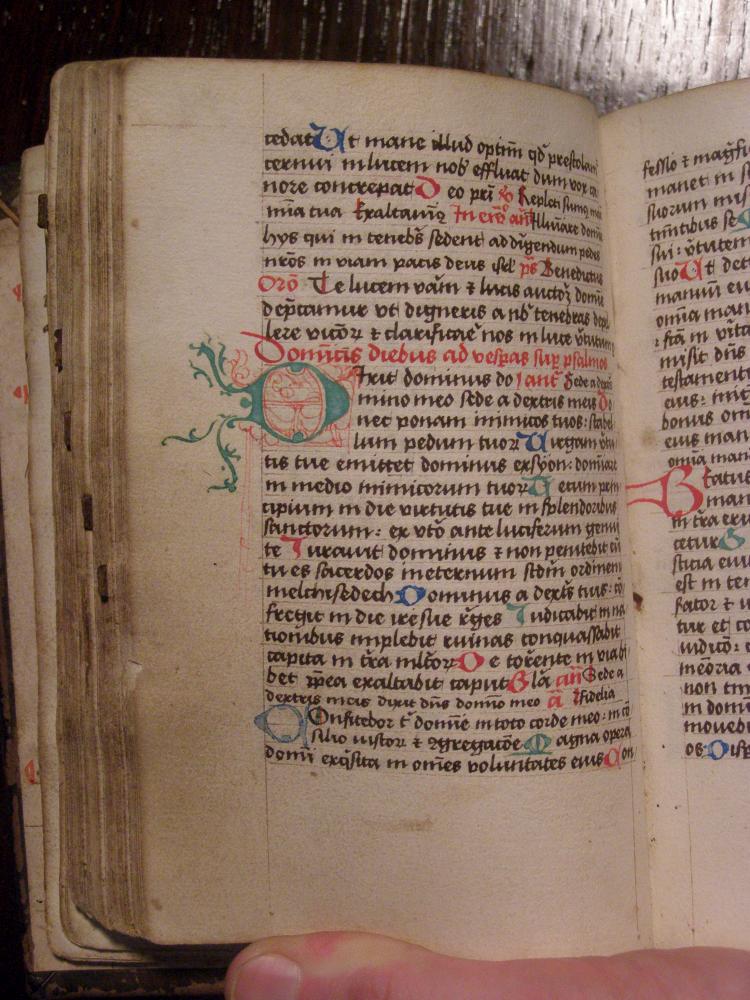 cedat Ut mane illud optim qd prestolam
cernui in lucem nob effluat dum vox ca
nore concrepat D eo pri Repleti sumus mi
mia tua Exaltavim In ev an Illuminare domi
hys qui in tenebs sedent ad dirigendum pedes
nros in viam pacis deus isrl ps Benedictus
Oro Te lucem veram & lucis auctorem domine
deprecamur ut digneris a nob tenebras depel
lere vicior & clarificare nos in luce virtutum
Dominicis diebus ad vespas sup psalmos
Dixit dominus do ant Sede a dextris
mino meo sede a dextris meis Do
nec ponam inimicos tuos: scabel
lum pedum tuor Virgam virtu
tis tue emittet dominus ex syon: dominare
in medio inimicorum tuor Tecum prin
cipium in die virtutis tue in splendoribus
sanctorum: ex utero ante luciferum genui
te Juravit dominus & non penitebit eu
tu es sacerdos in eternum scdm ordinem
melchisedech Dominus a dextris tuis: con
fregit in die ire sue reges Judicabit in na
tionibus implebit ruinas conquassabit
capita in terra multor De torrente in via bi
bet propterea exaltabit caput Gla an Sede a
dextris meis dixit dns domino meo an Fidelia
Confitebor t domine in toto corde meo: in con
silio iustor & congregacone Magna opera
domi exqsita in omes voluntates eius Con
fessio & magfi
manet in s
suorum mis
timentibus se
sui: virtutem
suo Ut det
manuum eiu
omia man
fta in verita
misit dns
testamentu
eius: mag
bonus om
eius man
omia man
Beatus
man
in terra eru
cetur G
sticia eius
est in ten
rator & iu
tur et co
iudicio:
memoria
non tim
in domi
movebi
os: Disp